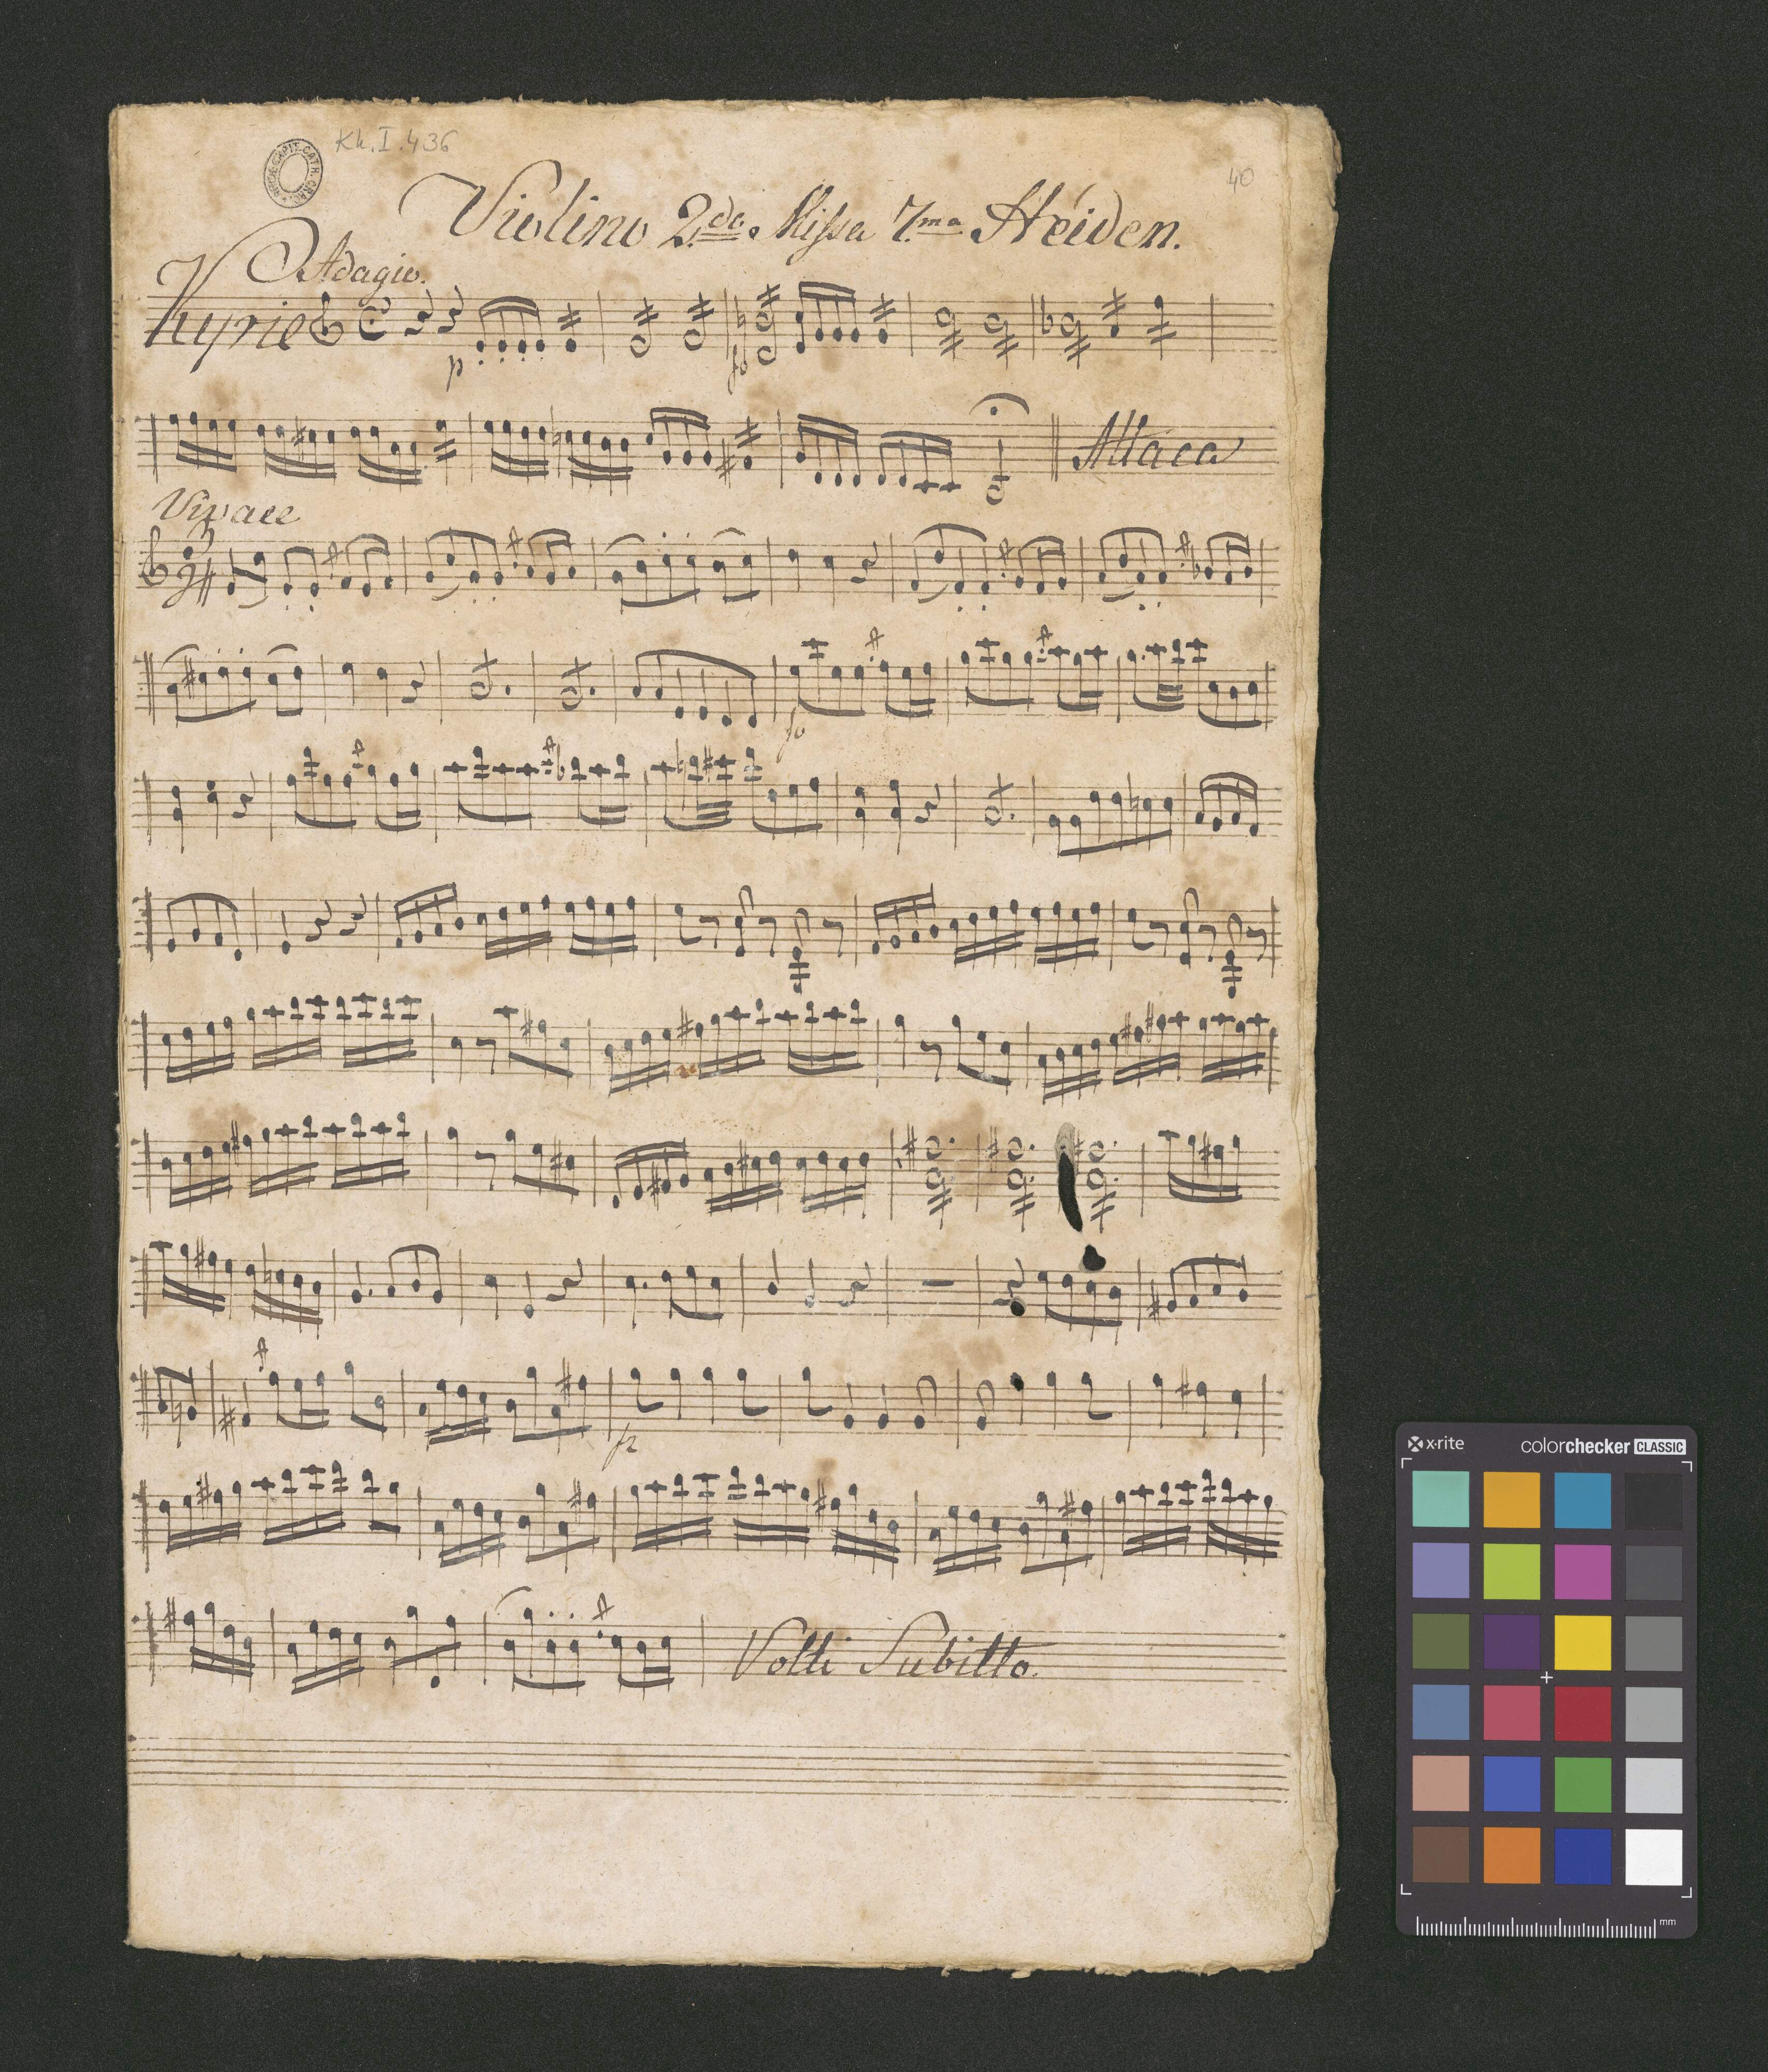 Kh. I. 436
40
Violino 2.do Missa 7.ma Heiden.
Adagio.
Kyrie
p
fo
Attaca
Vivace
3
fo
fz
Volti Subitto.
x-rite
colorchecker CLASSIC
mm